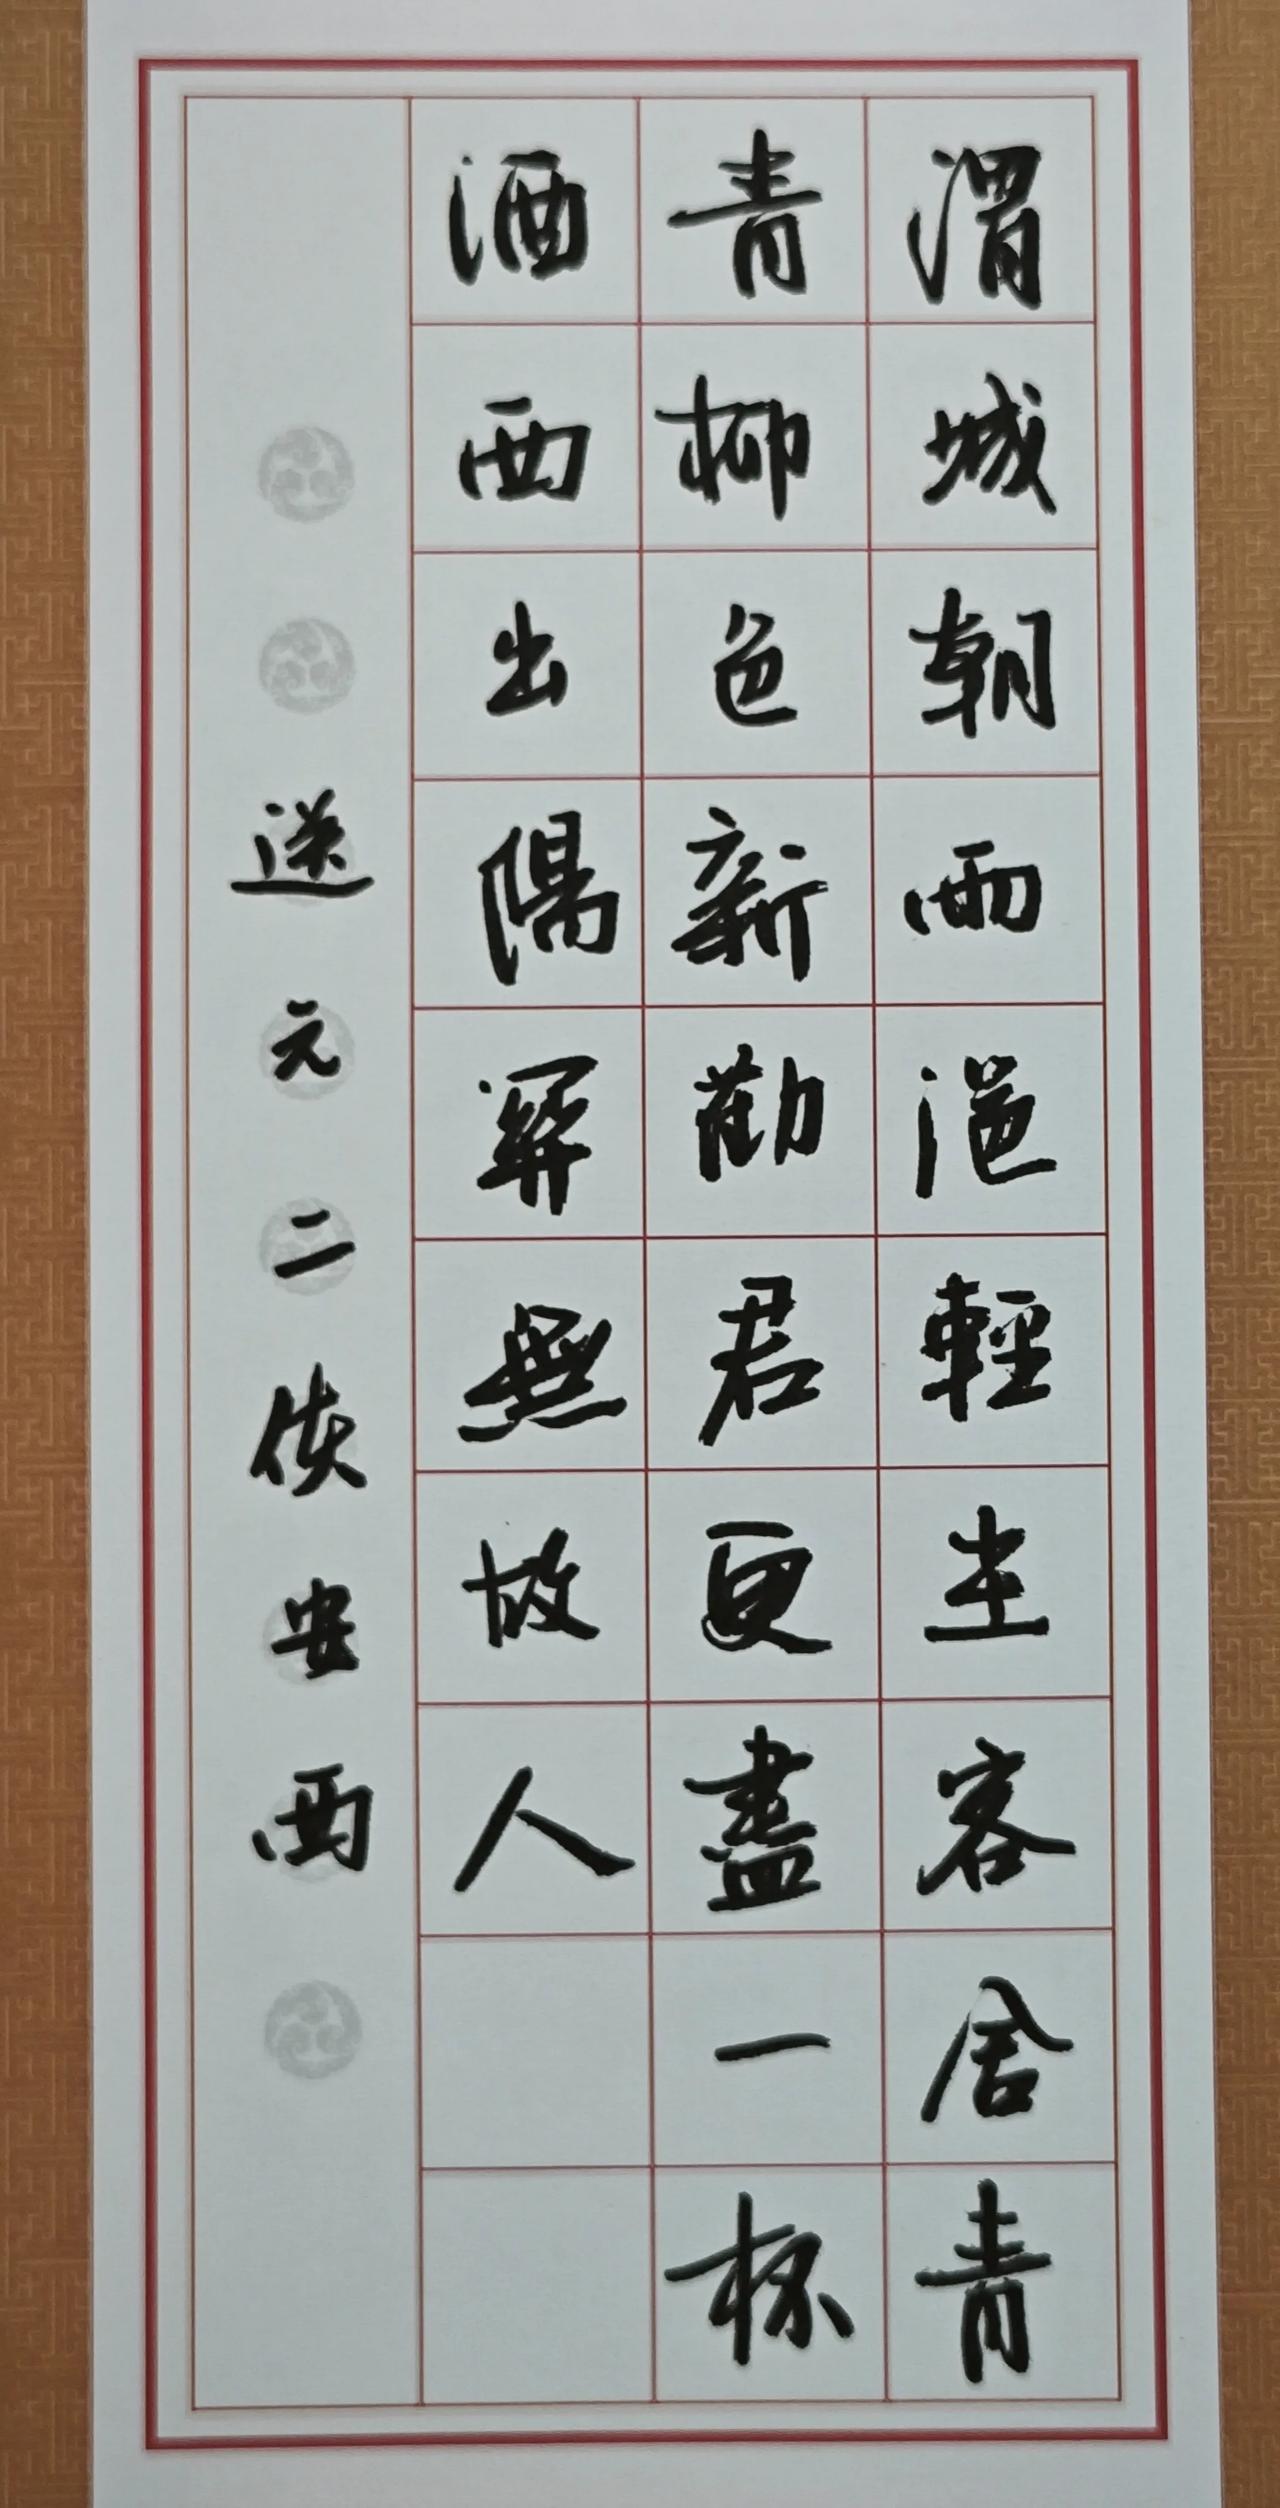 渭城朝雨浥輕尘客舍青
青柳色新勸君更盡一杯
酒西出陽關無故人
送元二使安西